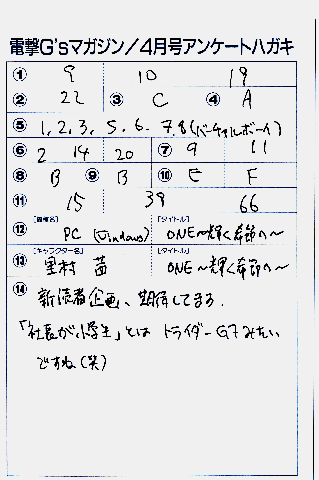 電撃G'sマガジン/4月号アンケートハガキ
① 9 10 19
② 22 ③ C ④ A
⑤ 1, 2, 3, 5, 6, 7, 8 (バーチャルボーイ)
⑥ 2 14 20 ⑦ 9 11
⑧ B ⑨ B ⑩ E F
⑪ 15 39 66
[機種名] [タイトル]
⑫ PC (Windows) ONE〜輝く季節へ〜
[キャラクター名] [タイトル]
⑬ 里村 茜 ONE〜輝く季節へ〜
⑭ 新読者企画、期待してまる.
「社長が小学生」とは トライダーG7みたい
ですね(笑)